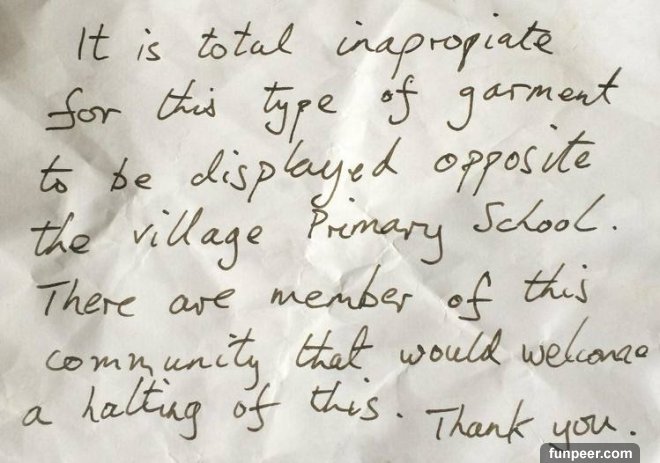 It is total inapropiate
for this type of garment
to be displayed opposite
the village Primary School.
There are member of this
community that would welcome
a halting of this. Thank you.
funpeer.com